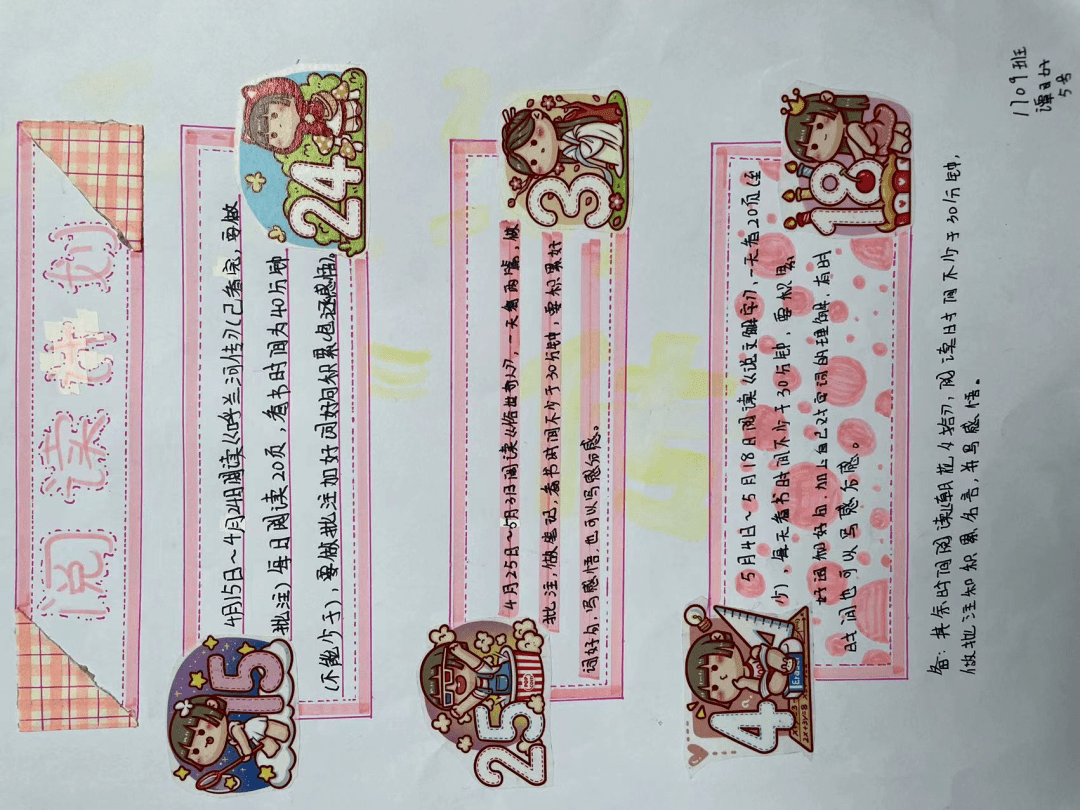 阅读计划
1709班
谭
5号
15
24
4月15日~4月24日阅读《呼兰河传》(已看完,要做
批注)每日阅读20页,看书时间为40分钟
(不能少于),要做批注加好词好句积累(也还感悟)。
25
3
4月25日~5月3日阅读《俗世奇人》,一天看两篇,做
批注,做笔记,看书时间不少于30分钟,要积累好
词好句,写感悟,也可以写感后感。
4
18
5月4日~5月18日阅读《说文解字》,一天看20页(至
少),每天看书时间不少于30分钟,要积累
好词加好句,加上自己对古词的理解,有时
时间也可以写感后感。
备:其余时间阅读《朝花夕拾》,阅读时间不少于30分钟,
做批注和积累名言,并写感悟。